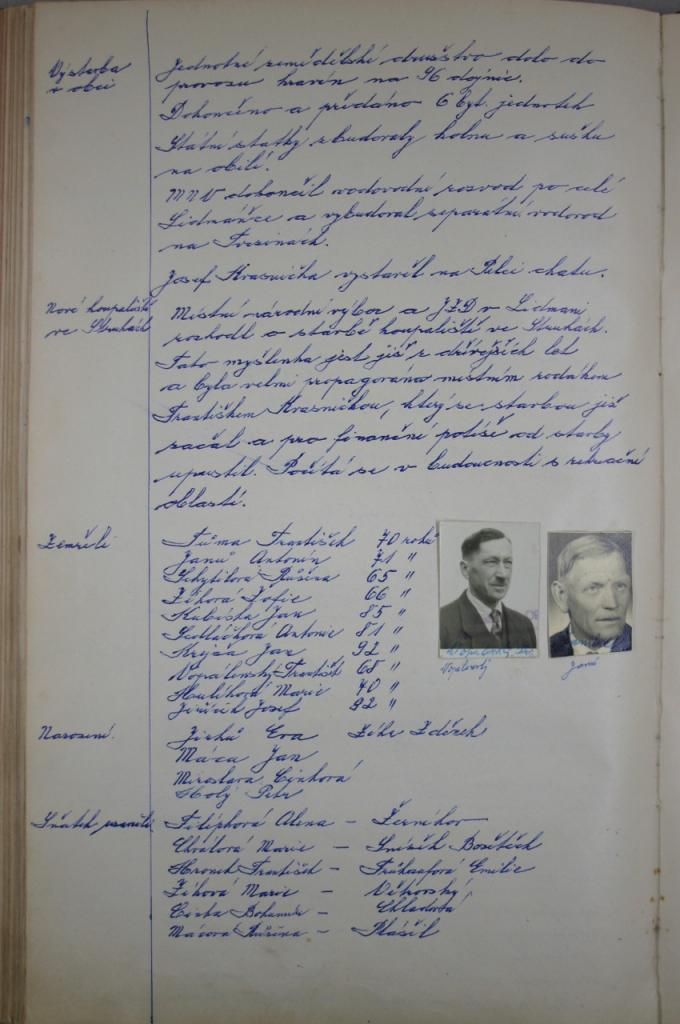 Výstavba
v obci
Jednotné zemědělské družstvo dalo do
provozu kravín na 96 dojnic.
Dokončeno a předáno 6 byt. jednotek
Státní statky zbudovaly kolnu a sušku
na obilí.
MNV dokončil vodovodní rozvod po celé
Lidmaňce a vybudoval separátní vodovod
na
Josef Krasnička vystavěl na chatu.
Nové koupaliště
ve Strukách
Místní národní výbor a JZD v Lidmani
rozhodl o stavbě koupaliště ve Strukách.
Tato myšlenka jest již z dřívějších let
a byla velmi propagována místním rodákem
Františkem Krasničkou, který se stavbou již
začal a pro finanční potíže od stavby
upustil. Počítá se v budoucnosti s rekreační
oblastí.
Zemřelí
Tůma František 70 roků
Janů Antonín 71 "
Růžena 65 "
Žáková Žofie 66 "
Kubiška Jan 85 "
Sedláčková Antonie 81 "
Krejča Jan 92 "
Vopálenský František 68 "
Marie 70 "
Jiříček Josef 92 "
Vopálenský
Janů
Narození.
Jirků Eva Zdeněk
Máca Jan
Miroslava
Holý Petr
Sňatek uzavřeli
Filípková Alena – Žerníkov
Marie – Bosětěch
Hronek František – Emilie
Marie – Větrovský
Bohumil –
Mácová Růžena – Plášil